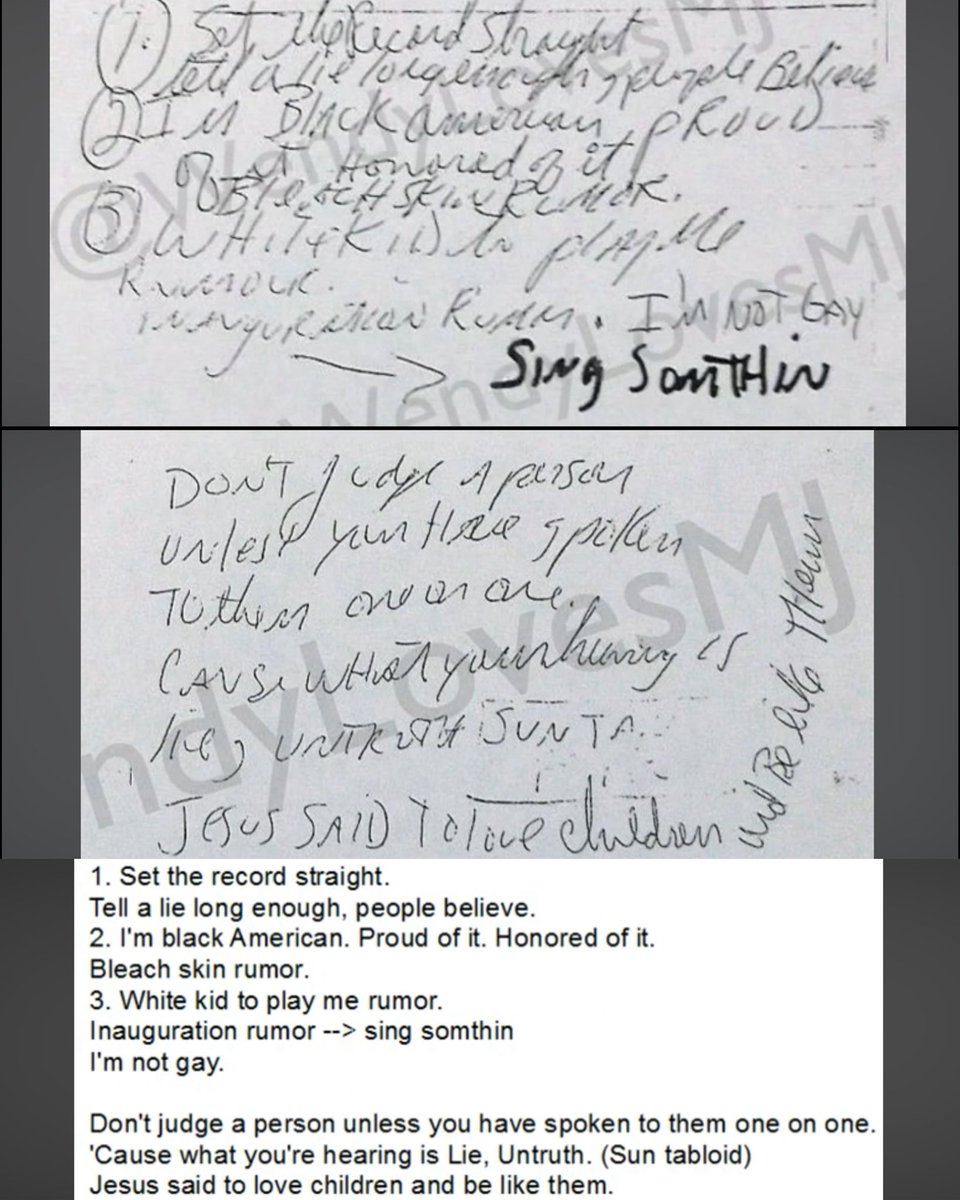 1. Set the Record Straight
tell a lie long enough, people Believe
2 I'm Black American, PROUD
Of it Honored of it
BLEACH SKIN RUMOR.
3 WHITE KID to play Me
Rumor.
inauguration Rumor. I'm NOT GAY
Sing SomTHin
@WendyLovesMJ
WendyLovesMJ
DON'T judge A person
unless you Have spoken
TO them one on one.
CAUSE WHAT your hearing is
lie, UNTRUTH SUN TA..
JESUS SAID To love children and Be like Them
ndyLovesMJ
1. Set the record straight.
Tell a lie long enough, people believe.
2. I'm black American. Proud of it. Honored of it.
Bleach skin rumor.
3. White kid to play me rumor.
Inauguration rumor --> sing somthin
I'm not gay.
Don't judge a person unless you have spoken to them one on one.
'Cause what you're hearing is Lie, Untruth. (Sun tabloid)
Jesus said to love children and be like them.